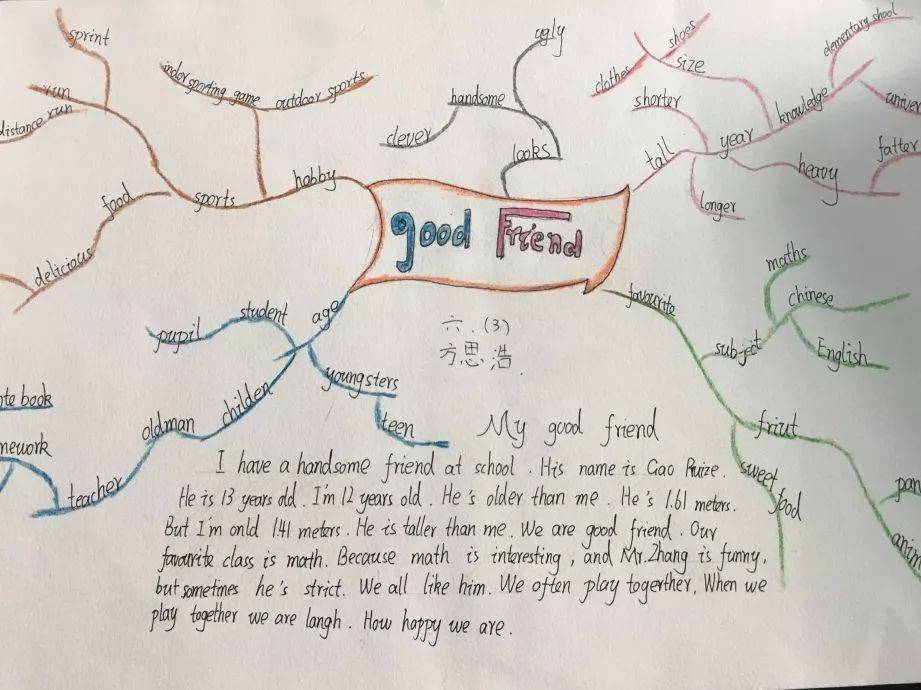 sprint
run
distance run
indor sporting game
outdoor sports
hobby
sports
food
delicious
ugly
handsome
clever
looks
shoes
clother
size
elementary shool
knowledge
univer
shorter
tall
year
heavy
fatter
longer
good Friend
favourite
maths
chinese
subject
English
friut
sweet food
pan
anim
age
student
pupil
youngsters
teen
childen
oldman
teacher
ote book
mework
六.(3)
方思浩.
My good friend
I have a handsome friend at school. His name is Gao Ruize.
He is 13 years old. I'm 12 years old. He's older than me. He's 1.61 meters.
But I'm onld 1.41 meters. He is taller than me. We are good friend. Our
favourite class is math. Because math is interesting, and Mr.Zhang is funny,
but sometimes he's strict. We all like him. We often play togerther, When we
play together we are langh. How happy we are.